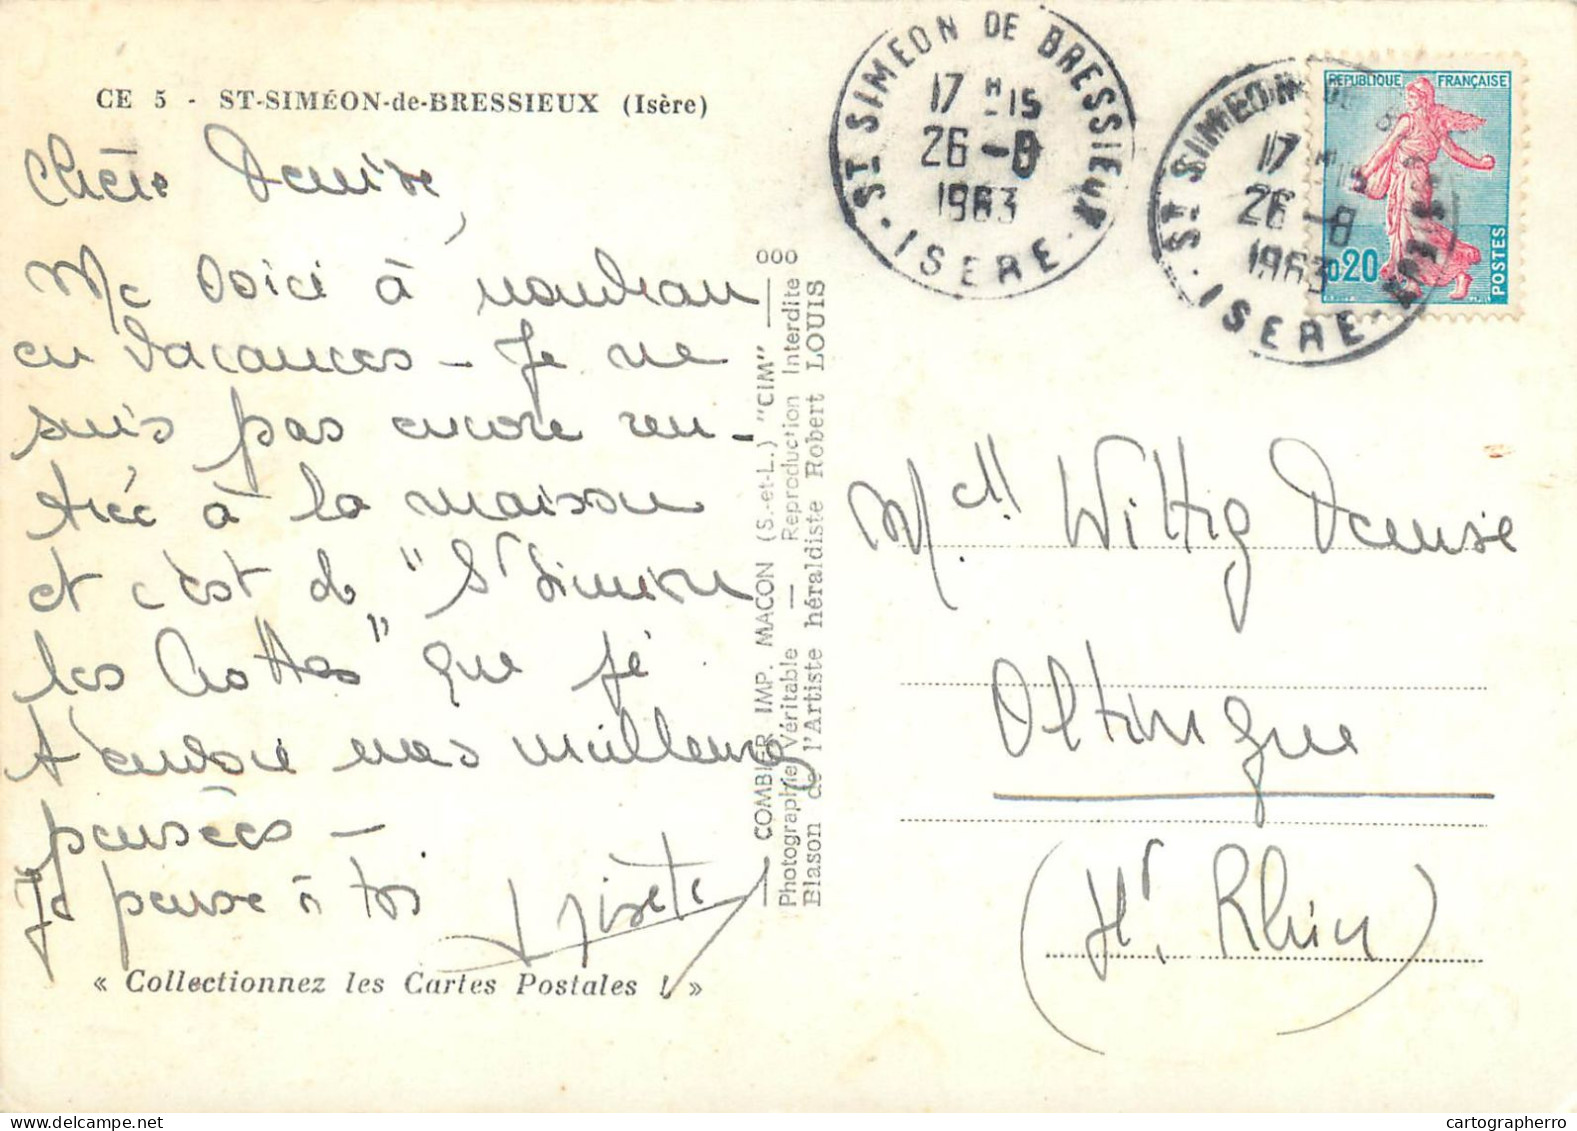 CE 5 - ST-SIMÉON-de-BRESSIEUX (Isère)
Chère Denise,
Me voici à nouveau
en vacances - Je ne
suis pas encore ren-
trée à la maison
et c'est de "St Siméon
les Crottes" que je
t'envoie mes meilleures
pensées -
Je pense à toi
Lisette
« Collectionnez les Cartes Postales ! »
000
COMBIER IMP. MACON (S.-et-L.) "CIM"
Photographie Véritable — Reproduction Interdite
Blason de l'Artiste héraldiste Robert LOUIS
ST SIMEON DE BRESSIEUX
17 H 15
26 -8
1963
ISERE
ST SIMEON DE BRESSIEUX
17 H 15
26 -8
1963
ISERE
REPUBLIQUE FRANÇAISE
0,20
POSTES
Melle Wittig Denise
Oltingue
(Ht. Rhin)
cartographerro